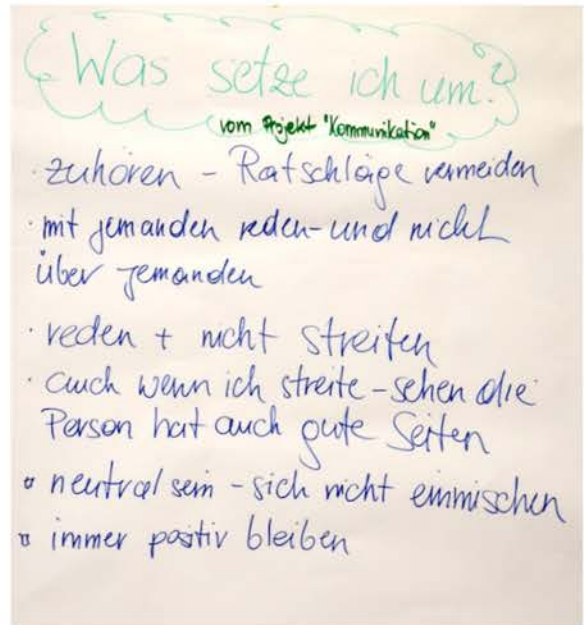 Was setze ich um?
vom Projekt "Kommunikation"
· zuhören - Ratschläge vermeiden
· mit jemanden reden - und nicht
über jemanden
· reden + nicht streiten
· auch wenn ich streite - sehen die
Person hat auch gute Seiten
▫ neutral sein - sich nicht einmischen
▫ immer positiv bleiben